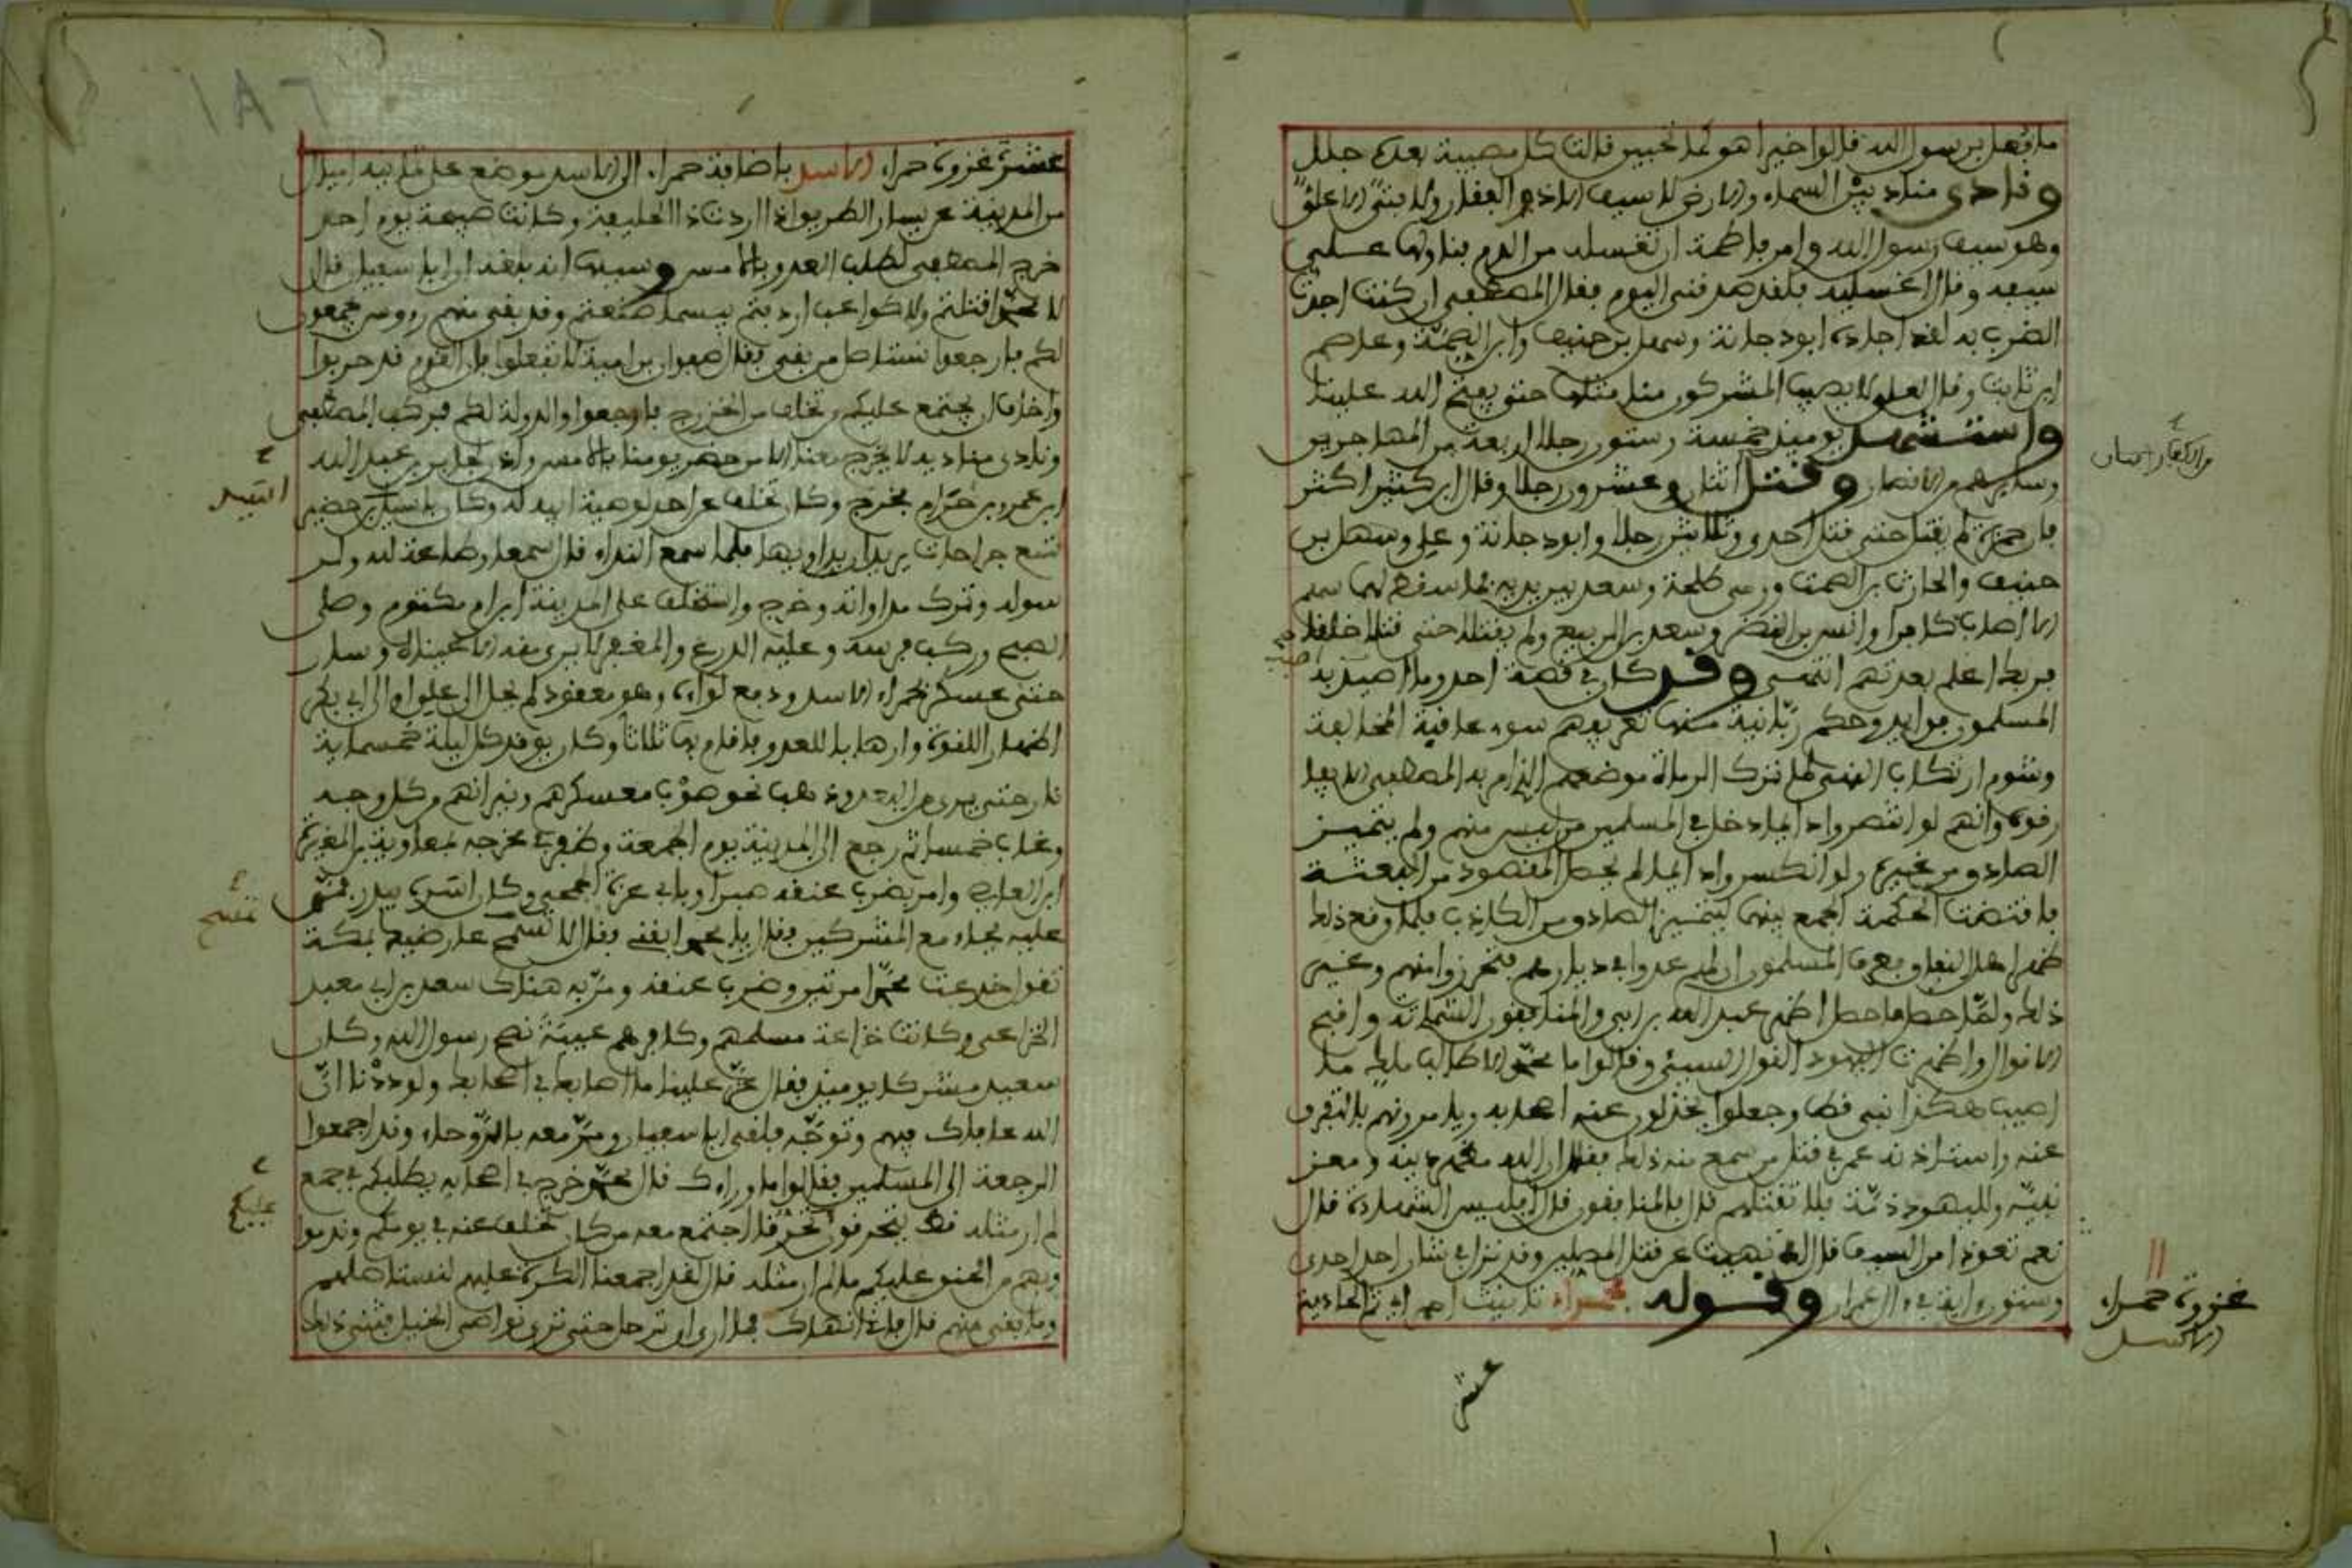 ما فعل برسول الله قالوا خيرا هو كما تحبين قالت كل مصيبة بعده جلل
ونادى مناد بين السماء والارض لا سيف الا ذو الفقار ولا فتى الا علي
وهو سيف رسول الله وامر فاطمة ان تغسله من الدم فناولها علي
سيفه وقال اغسليه فلقد صدقني اليوم فقال المصطفى ان كنت اجدت
الضرب به لقد اجاده ابو دجانة وسهل بن حنيف وابن الصمة وعاصم
ابن ثابت وقال لعلي لا يصيب المشركون منا مثلها حتى يفتح الله علينا
واستشهد يومئذ خمسة وستون رجلا اربعة من المهاجرين
من الكفار
وسايرهم من الانصار وقتل اثنان وعشرون رجلا وقال ابن كثير اكثر
فان حمزة لم يقتل حتى قتل احدى وثلاثين رجلا وابو دجانة وعلي وسهل بن
حنيف والحارث بن الصمة ورمى طلحة وسعد بين يديه فما سقط لهما سهم
الا اصاب كافرا وانس بن النضر وسعد بن الربيع ولم يقتلا حتى قتلا خلقا
فربك اعلم بعدتهم انتهى وقد كان في قصة احد وما اصيب به
المسلمون فوايد وحكم ربانية منها تعريفهم سوء عاقبة المخالفة
وشوم ارتكاب النهي لما ترك الرماة موضعهم الذي امر به المصطفى الا يفا
رقوه وانهم لو انتصروا دايما دخل في المسلمين من ليس منهم ولم يتميز
الصادق من غيره ولو انكسروا دايما لم يحصل المقصود من البعثة
فاقتضت الحكمة الجمع بينهما ليتميز الصادق من الكاذب فلما وقع ذلك
ظهر اهل النفاق فعرف المسلمون ان لهم عدوا في ديارهم فتحرزوا منهم وغير
ذلك ولما حصل ما حصل اظهر عبد الله بن ابي والمنافقون الشماتة واقبح
الاقوال واظهرت اليهود القول السيئ وقالوا ما محمد الا طالب ملك ما
اصيب هكذا نبي قط وجعلوا يخذلون عنه اصحابه ويامرونهم بالتفرق
عنه واستاذنه عمر في قتل من سمع منه ذلك فقال ان الله مظهر دينه ومعز
نبيه ولليهود ذمة فلا نقتلهم قال فالمنافقون قال اليس الشهادة قال
نعم تعوذا من السيف قال نهيت عن قتل المصلين وقد نزل في شان احد احدى
وستون اية في ال عمران وقوله حمراء تانيث احمر اي ثم الحادية
غزوة حمراء
الاسد
عشر
١٨٦
عشر غزوة حمراء الاسد باضافة حمراء الى الاسد موضع على ثمانية اميال
من المدينة عن يسار الطريق اذا اردت ذا الحليفة وكانت صبيحة يوم احد
خرج المصطفى لطلب العدو بالامس وسببها انه بلغه ان ابا سفيان قال
لا محمدا قتلتم ولا كواعب اردفتم بيسما صنعتم وقد بقي منهم رءوس يجمعون
لكم فارجعوا نستاصل من بقي فقال صفوان بن امية لا تفعلوا فان القوم قد حربوا
واخاف ان يجتمع عليكم من تخلف من الخزرج فارجعوا والدولة لكم فركب المصطفى
ونادى مناديه لا يخرج معنا الا من حضر يومنا بالامس واذن لجابر بن عبد الله
ابن عمرو بن حرام فخرج وكان تخلف عن احد لوصية ابيه له وكان باسيد بن حضير
اسيد
تسع جراحات يريد ان يداويها فلما سمع النداء قال سمعا وطاعة لله ولر
سوله وترك مداواته وخرج واستخلف على المدينة ابن ام مكتوم وصلى
الصبح وركب فرسه وعليه الدرع والمغفر لا يرى منه الا عيناه وسار
حتى عسكر بحمراء الاسد ودفع لواءه وهو معقود لم يحل الى علي او الى ابي بكر
اظهارا للقوة وارهابا للعدو فاقام بها ثلاثا وكان يوقد كل ليلة خمسماية
نار حتى يرى من البعد وذهب نحو صوت معسكرهم ونيرانهم وكل وجه
وغاب خمسا ثم رجع الى المدينة يوم الجمعة وظفر في مخرجه بمعاوية بن المغيرة
ابن العاص وامر بضرب عنقه صبرا وبابي عزة الجمحي وكان اسر ببدر فمن
عليه فجاء مع المشركين فقال يا محمد اقلني فقال لا تمسح عارضيك بمكة
تمسح
تقول خدعت محمدا مرتين وضرب عنقه ومر به هناك سعد بن ابي معبد
الخزاعي وكانت خزاعة مسلمهم وكافرهم عيبة نصح رسول الله وكان
معبد مشركا يومئذ فقال عز علينا ما اصابك في اصحابك ولوددنا ان
الله عافاك فيهم وتوجه فلقي ابا سفيان ومن معه بالروحاء وقد اجمعوا
الرجعة الى المسلمين فقالوا ما وراءك قال محمد خرج في اصحابه يطلبكم في جمع
لم ار مثله قط يتحرقون تحرقا اجتمع معه من كان تخلف عنه في يومكم وندموا
عليكم
وبهم من الحنق عليكم ما لم ار مثله قال لقد اجمعنا الكرة عليهم لنستاصلهم
وما بقي منهم قال فاني انهاك فما ارى ان ترحل حتى ترى نواصي الخيل فثنى ذلك